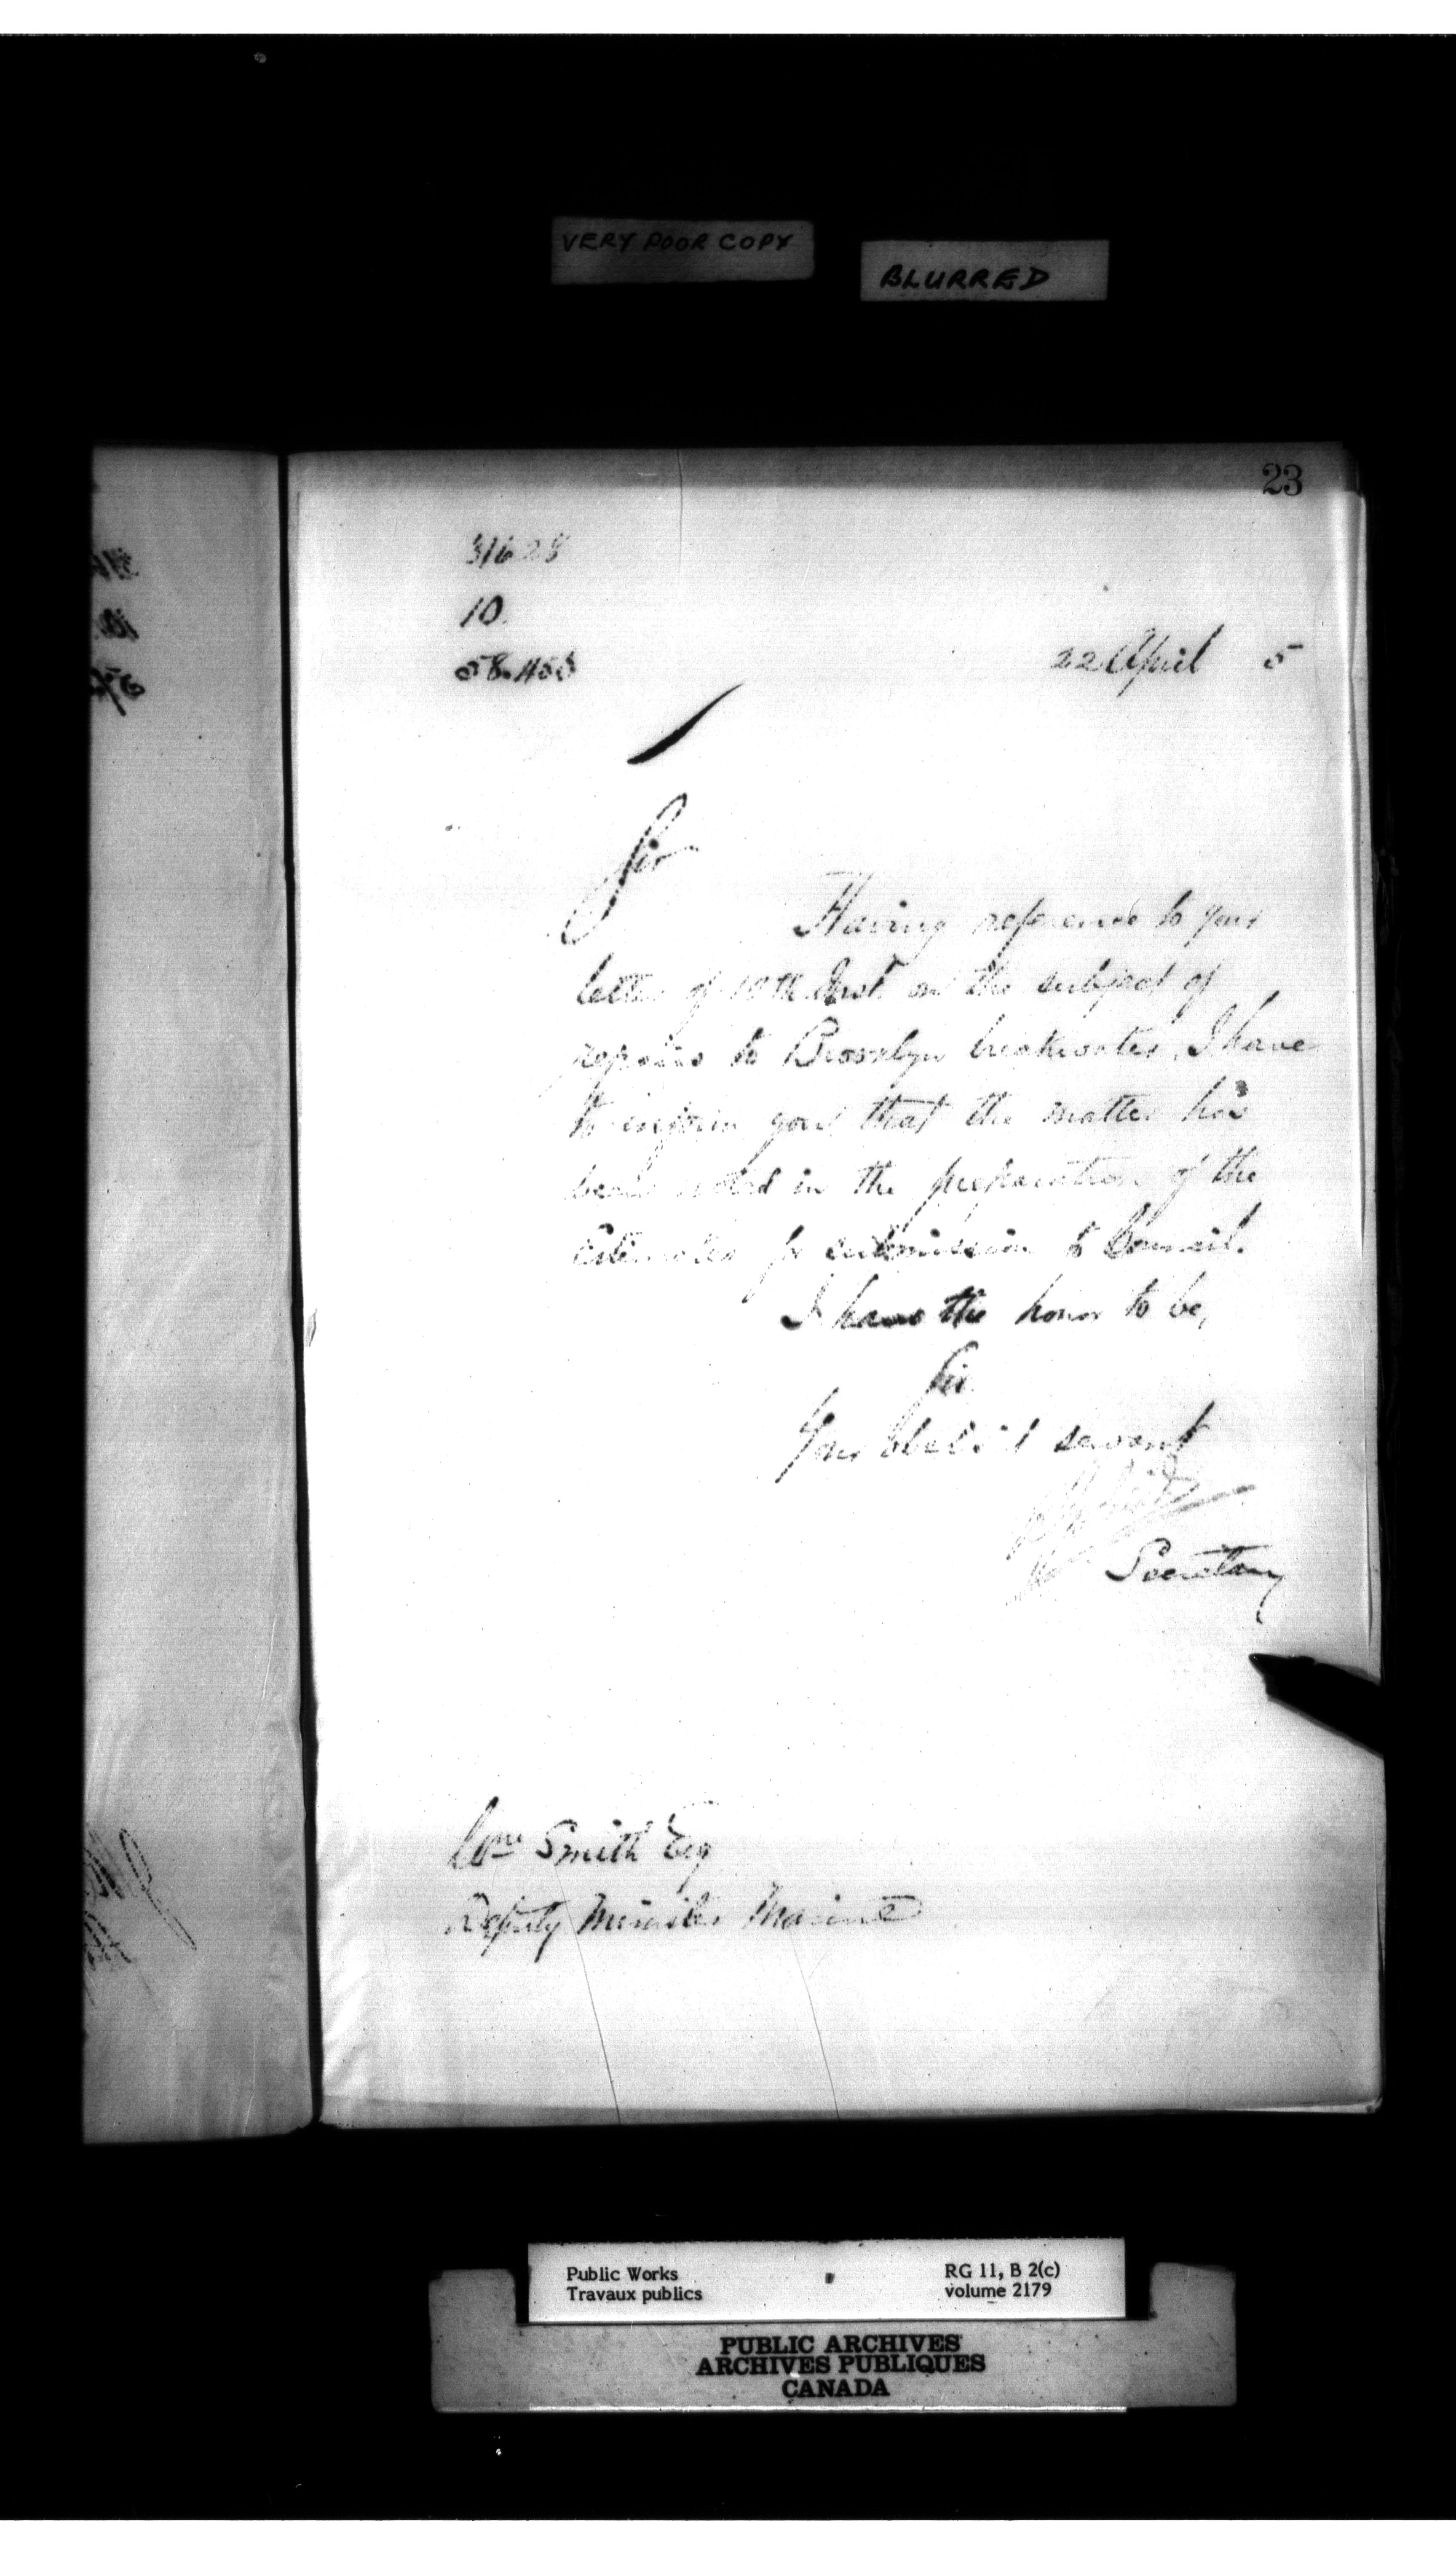 VERY POOR COPY
BLURRED
23
31628
10.
22 April 5
Sir
Having reference to your
letter of 10th Inst. on the subject of
repairs to Brooklyn breakwater, I have
to inform you that the matter has
been noted in the preparation of the
Estimates for submission to Council.
I have the honor to be,
Sir
Your obed't servant
Secretary
Wm Smith Esq
Deputy Minister Marine
Public Works
Travaux publics
RG 11, B 2(c)
volume 2179
PUBLIC ARCHIVES
ARCHIVES PUBLIQUES
CANADA